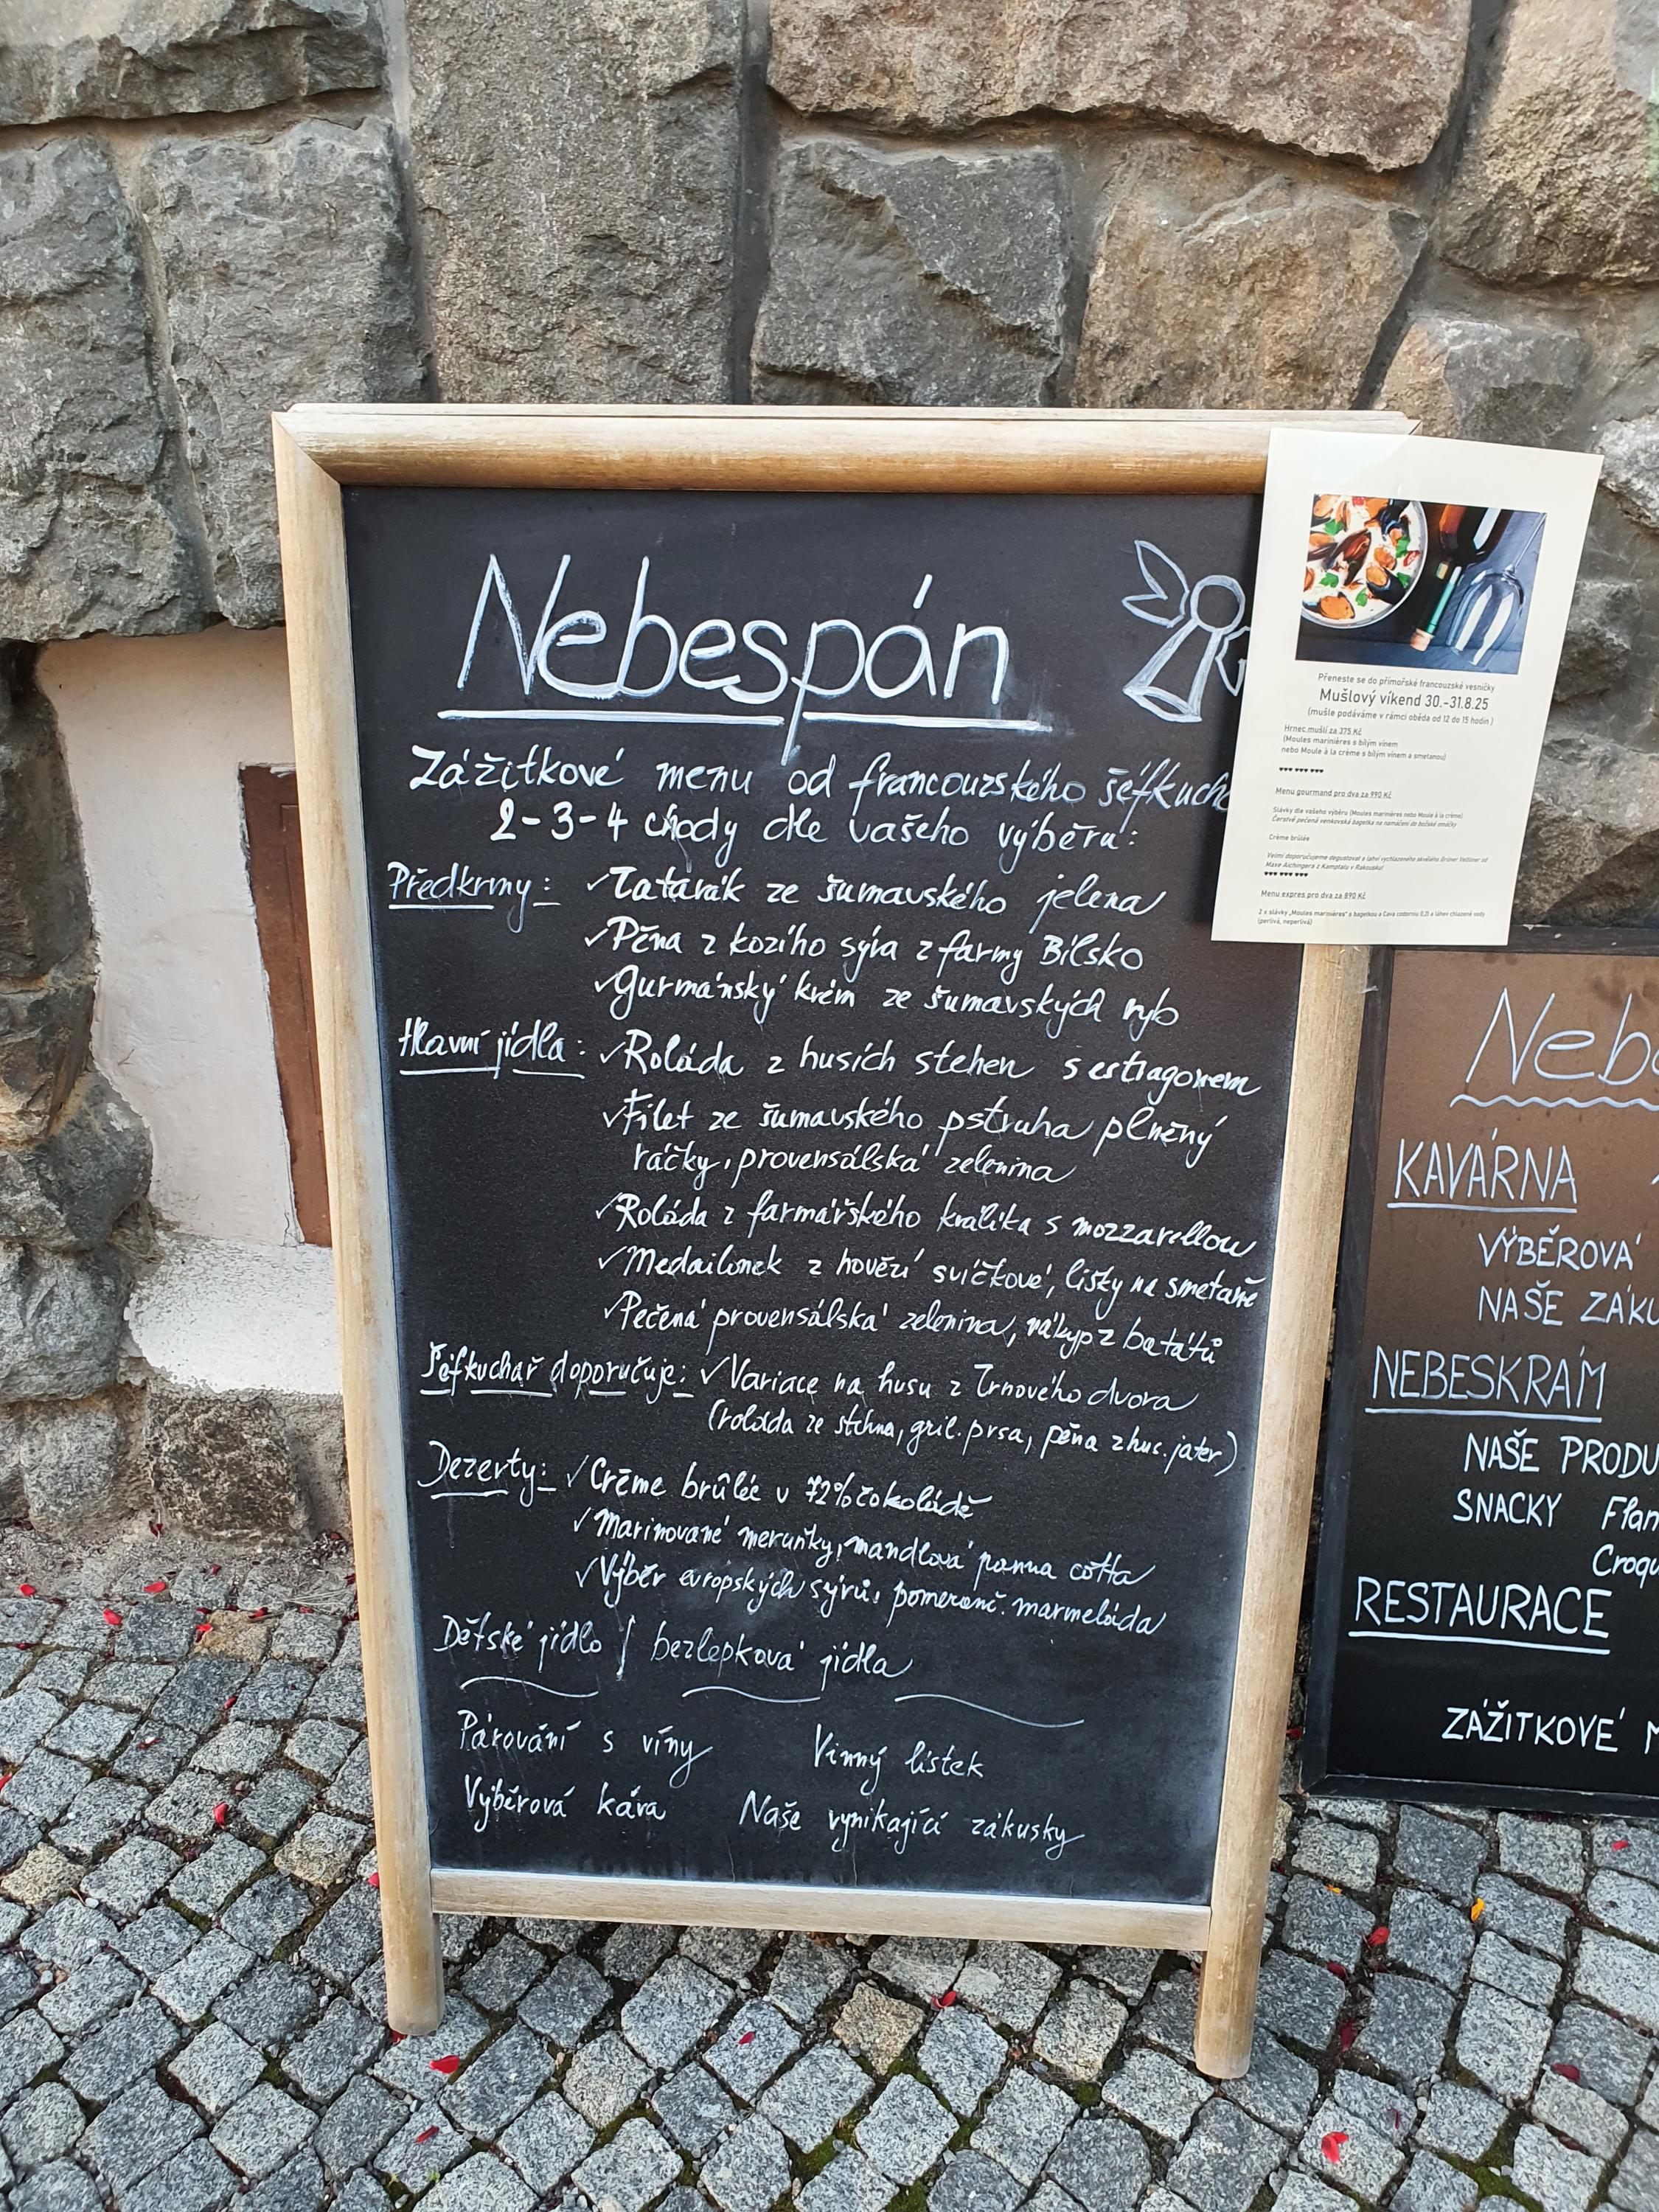 Nebespán
Zážitkové menu od francouzského šéfkucha
2-3-4 chody dle vašeho výběru:
Předkrmy: ✓Tatarák ze šumavského jelena
✓Pěna z kozího sýra z farmy Bílsko
✓Gurmánský krém ze šumavských ryb
Hlavní jídla: ✓Roláda z husích stehen s estragonem
✓Filet ze šumavského pstruha plněný
ráčky, provensálská zelenina
✓Roláda z farmářského králíka s mozzarellou
✓Medailonek z hovězí svíčkové, lišky na smetaně
✓Pečená provensálská zelenina, nákyp z batátů
Šéfkuchař doporučuje: ✓Variace na husu z Trnového dvora
(roláda ze stehna, gril. prsa, pěna z hus. jater)
Dezerty: ✓Crème brûlée v 72% čokoládě
✓Marinované meruňky, mandlová panna cotta
✓Výběr evropských sýrů, pomeranč. marmeláda
Dětské jídlo / bezlepková jídla
Párování s víny Vinný lístek
Výběrová káva Naše vynikající zákusky
Přeneste se do přímořské francouzské vesničky
Mušlový víkend 30.-31.8.25
(mušle podáváme v rámci oběda od 12 do 15 hodin)
Hrnec mušlí za 375 Kč
(Moules marinières s bílým vínem
nebo Moule à la crème s bílým vínem a smetanou)
♥♥♥ ♥♥♥ ♥♥♥
Menu gourmand pro dva za 990 Kč
Slávky dle vašeho výběru (Moules marinières nebo Moule à la crème)
Čerstvě pečená venkovská bagetka na namáčení do božské omáčky
Crème brûlée
Velmi doporučujeme degustovat s lahví vychlazeného skvělého Grüner Veltliner od
Maxe Aichingera z Kamptalu v Rakousku!
♥♥♥ ♥♥♥ ♥♥♥
Menu expres pro dva za 890 Kč
2 x slávky „Moules marinières" s bagetkou a Cava codorníu 0,2l a láhev chlazené vody
(perlivá, neperlivá)
Neb
KAVÁRNA
VÝBĚROVÁ
NAŠE ZÁKU
NEBESKRÁM
NAŠE PRODU
SNACKY Flam
Croqu
RESTAURACE
ZÁŽITKOVÉ M